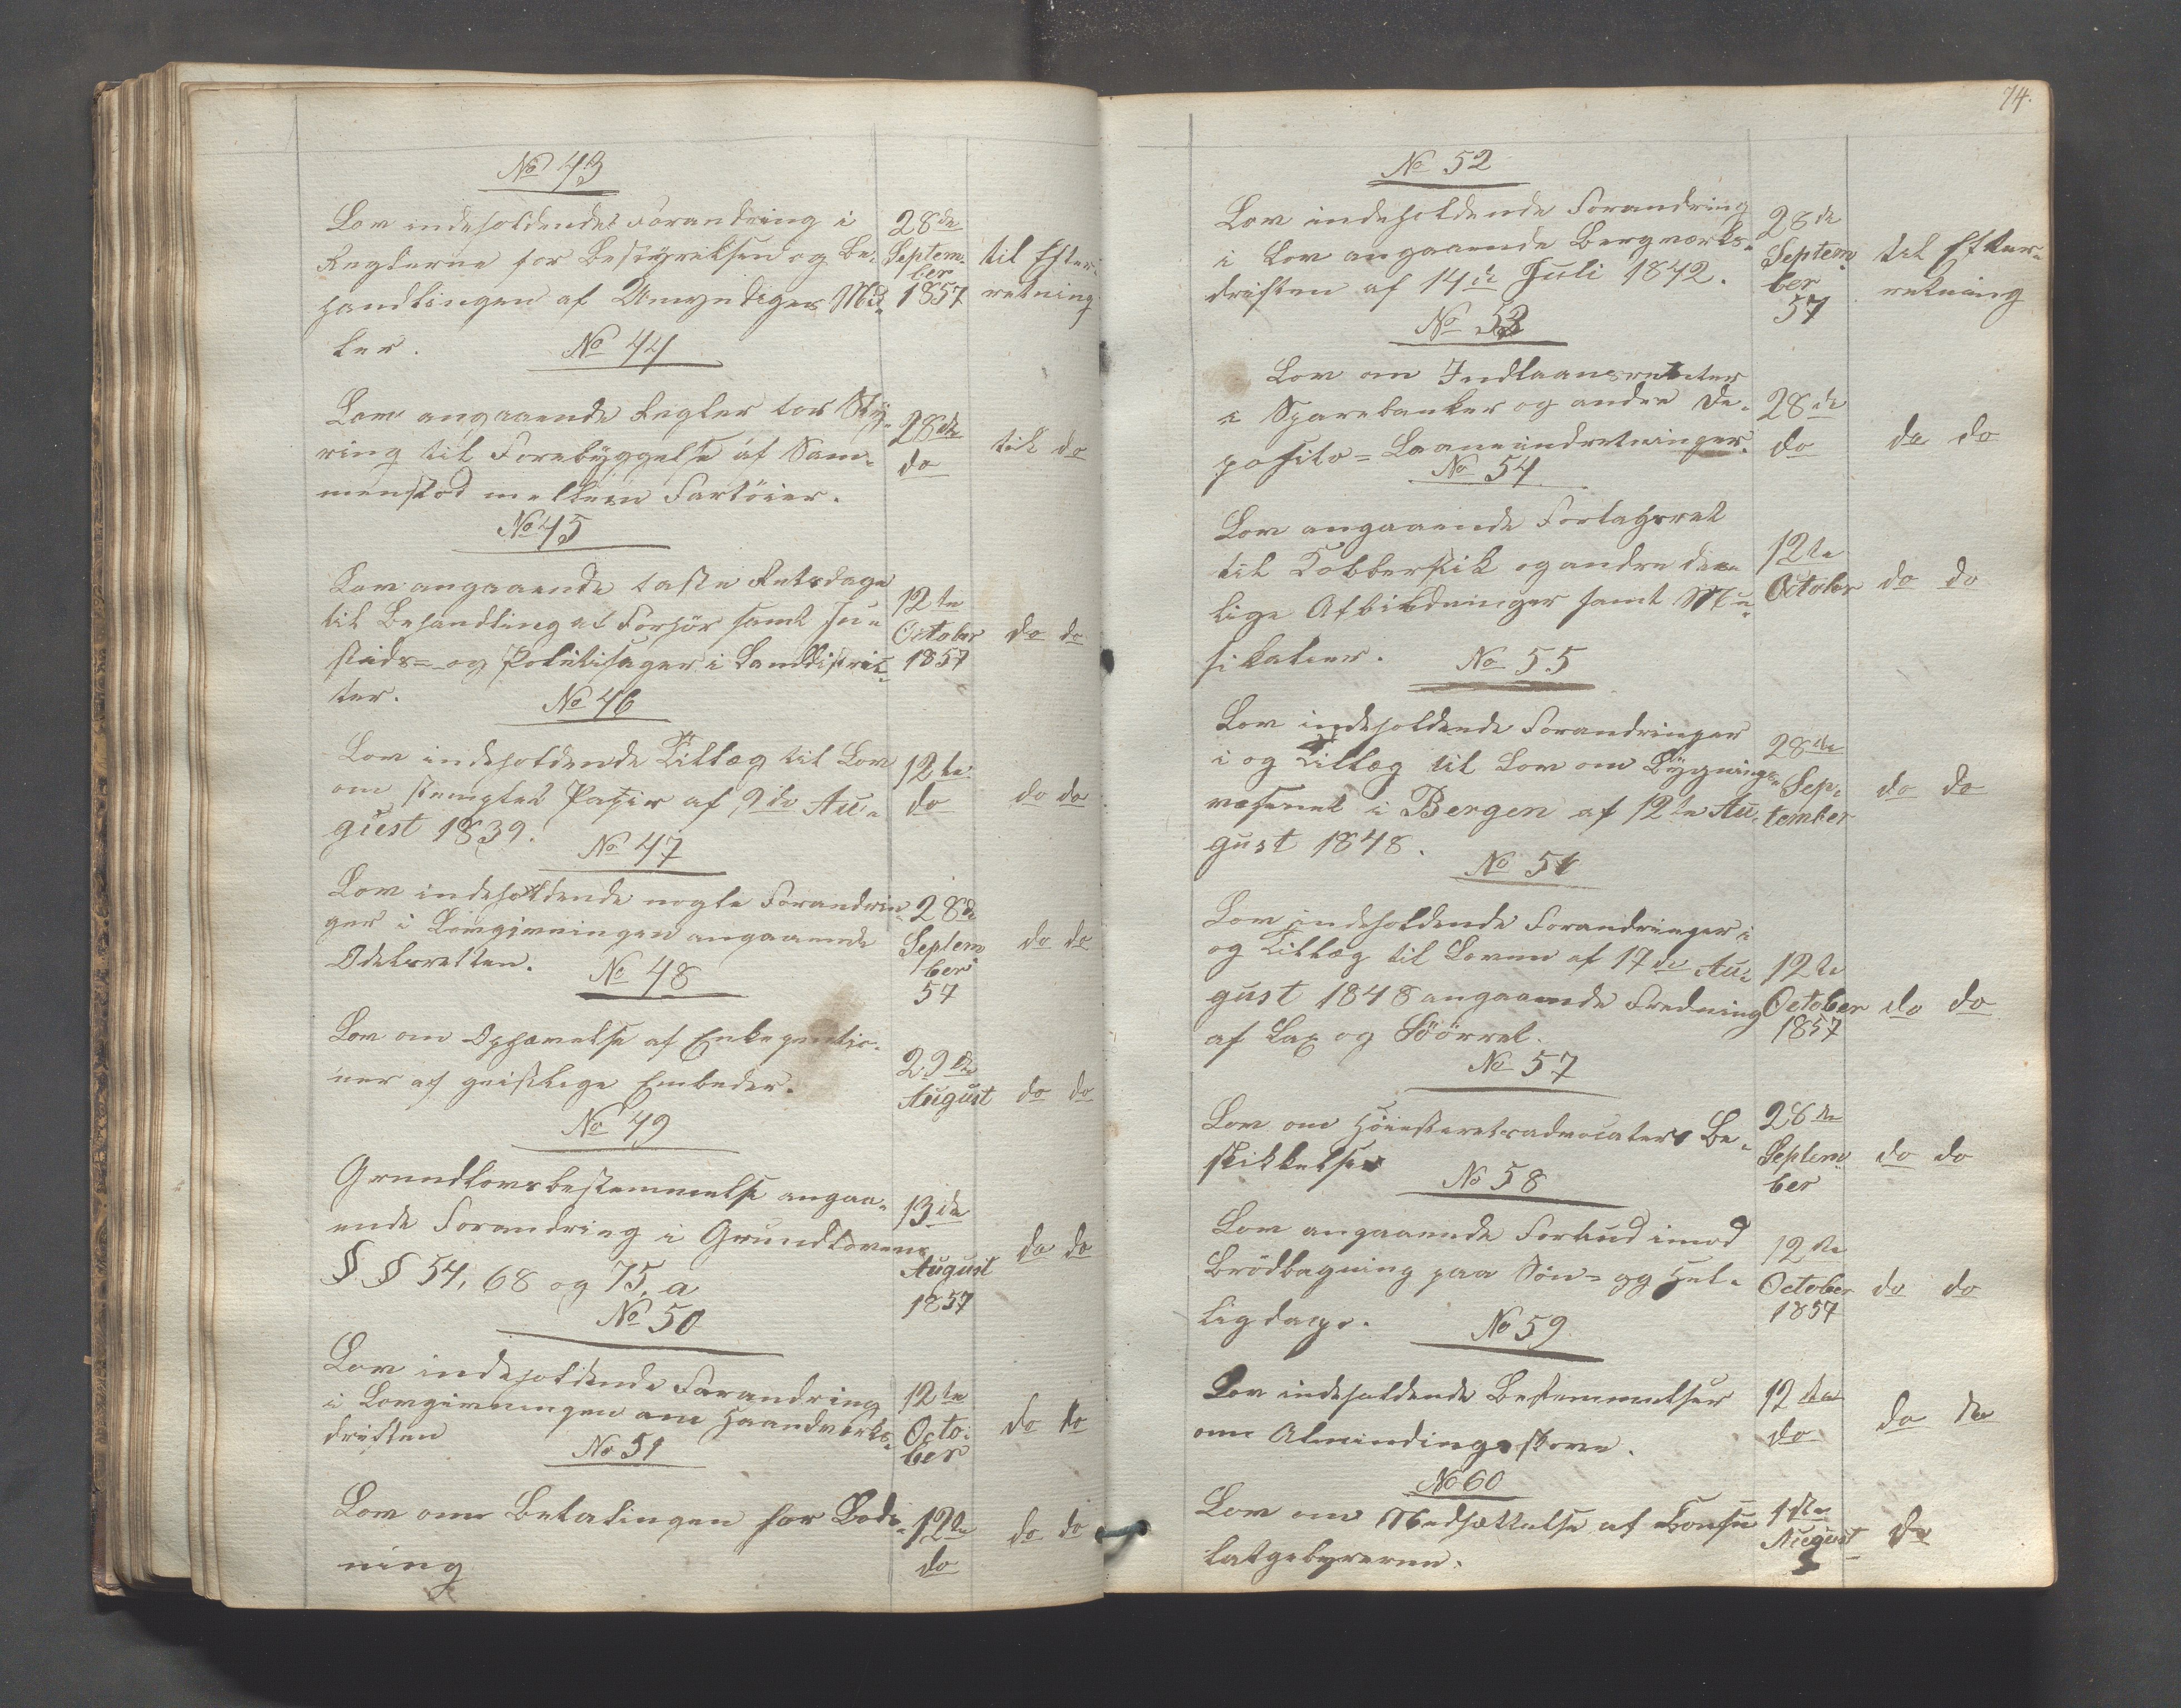 No 43
Lov indeholdende Forandring i
Reglerne for Bestyrelsen og Be-
handlingen af Umyndiges Mid-
ler.
28de
Septem-
ber
1857
til Efter-
retning
No 44
Lov angaaende Regler for Sty-
ring til Forebyggelse af Sam-
menstød mellem Fartøier.
28de
do
til do
No 45
Lov angaaende faste Retsdage
til Behandling af Forhør samt Ju-
stids- og Politisager i Landdistrik-
ter.
12te
October
1857
do do
No 46
Lov indeholdende Tillæg til Lov
om stemplet Papir af 9de Au-
gust 1839.
12te
do
do do
No 47
Lov indeholdende nogle Forandrin-
ger i Lovgivningen angaaende
Odelsretten.
28de
Septem
ber
57
do do
No 48
Lov om Ophævelse af Enkepensio-
ner af geistlige Embeder.
29de
August
do do
No 49
Grundlovsbestemmelse angaa-
ende Forandring i Grundlovens
§ § 54, 68 og 75, a
13de
August
1857
do do
No 50
Lov indeholdende Forandring
i Lovgivningen om Haandverks-
driften
12te
Octo-
ber
do do
No 51
Lov om Betalingen for Lods-
ning
12te
do
do do
74.
No 52
Lov indeholdende Forandring
i Lov angaaende Bergværks-
driften af 14de Juli 1842.
28de
Septem
ber
57
til Efter-
retning
No 53
Lov om Indlaansrenter
i Sparebanker og andre De-
posito- Laaneindretninger.
28de
do
do do
No 54
Lov angaaende Forlagsret
til Kobberstik og andre des-
lige Afbildninger samt Mu-
sikalier.
12te
October
do do
No 55
Lov indeholdende Forandringer
i og Tillæg til Lov om Bygnings-
væsenet i Bergen af 12te Au-
gust 1848.
28de
Sep-
tember
do do
No 56
Lov indeholdende Forandringer i
og Tillæg til Loven af 17de Au-
gust 1848 angaaende Fredning
af Lax og Søørret.
12te
October
1857
do do
No 57
Lov om Høiesteretsadvocaters Be-
skikkelse
28de
Septem
ber
do do
No 58
Lov angaaende Forbud imod
Brødbagning paa Søn- og Hel-
ligdage.
12te
October
1857
do do
No 59
Lov indeholdende Bestemmelser
om Almindingsskove.
12te
do
do do
No 60
Lov om Nedsættelse af Konsu
latgebyrerne.
1ste
August
do